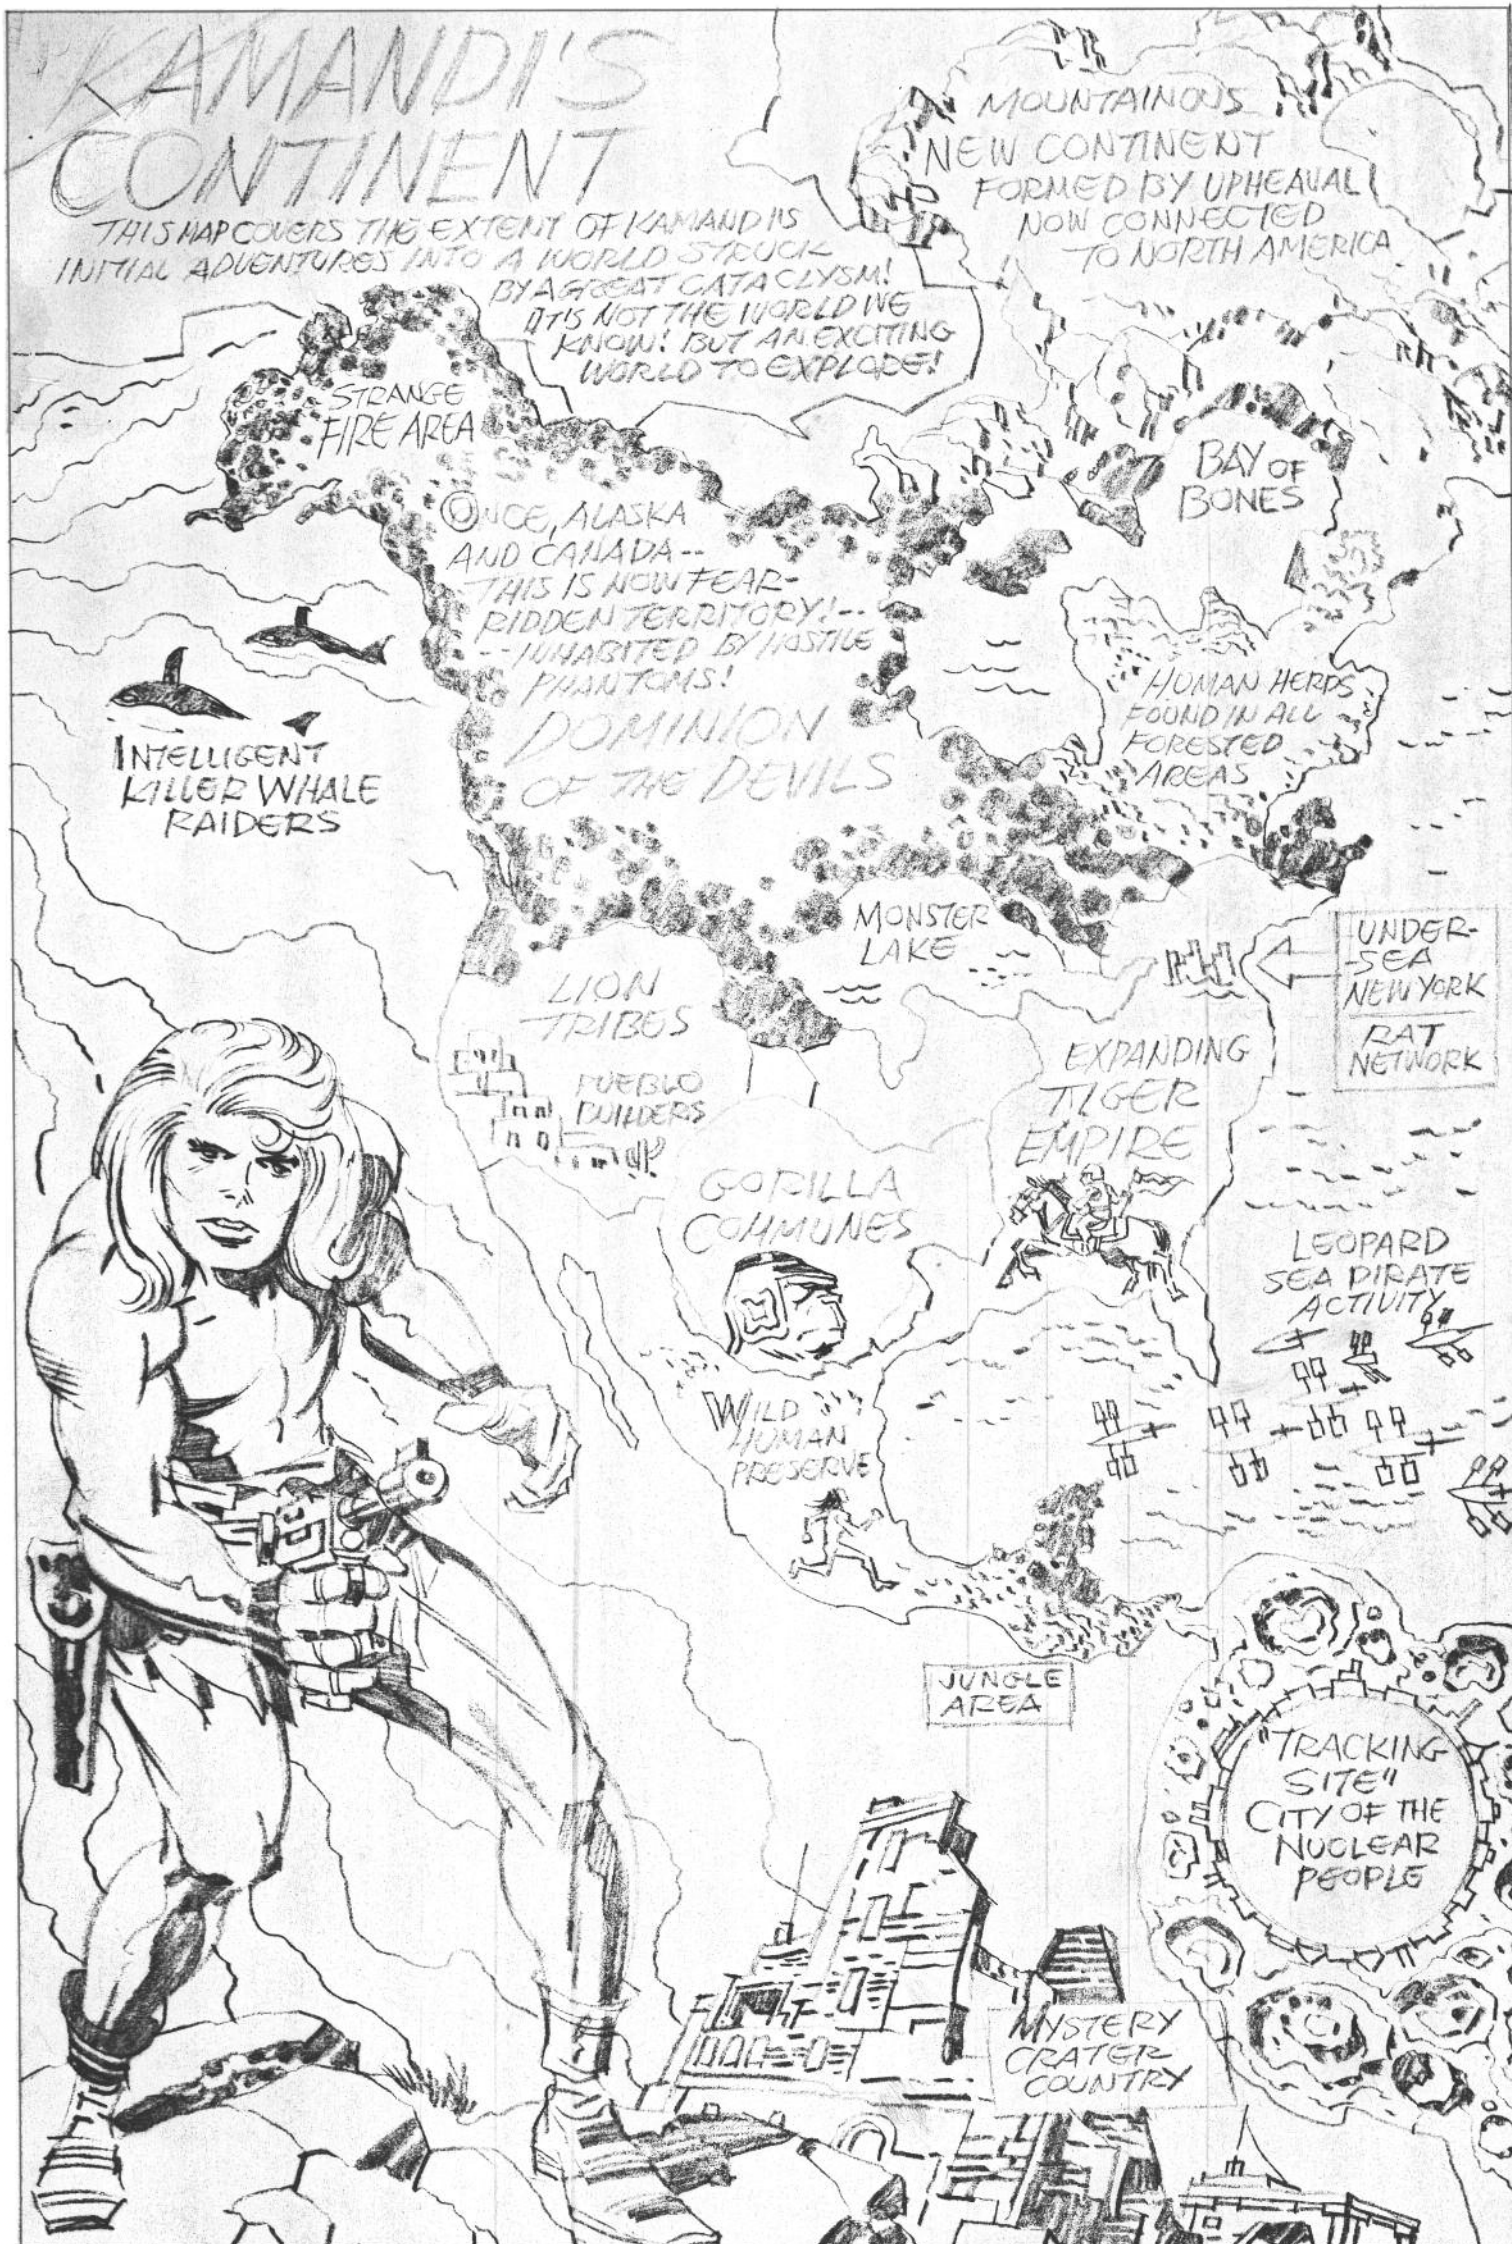 KAMANDI'S
CONTINENT
THIS MAP COVERS THE EXTENT OF KAMANDI'S
INITIAL ADVENTURES INTO A WORLD STRUCK
BY A GREAT CATACLYSM!
IT'S NOT THE WORLD WE
KNOW! BUT AN EXCITING
WORLD TO EXPLODE!
MOUNTAINOUS
NEW CONTINENT
FORMED BY UPHEAVAL
NOW CONNECTED
TO NORTH AMERICA
STRANGE
FIRE AREA
BAY OF
BONES
ONCE, ALASKA
AND CANADA--
THIS IS NOW FEAR-
RIDDEN TERRITORY!--
--INHABITED BY HOSTILE
PHANTOMS!
DOMINION
OF THE DEVILS
HUMAN HERDS
FOUND IN ALL
FORESTED
AREAS
INTELLIGENT
KILLER WHALE
RAIDERS
MONSTER
LAKE
UNDER-
-SEA
NEW YORK
RAT
NETWORK
LION
TRIBES
PUEBLO
BUILDERS
EXPANDING
TIGER
EMPIRE
GORILLA
COMMUNES
LEOPARD
SEA PIRATE
ACTIVITY
WILD
HUMAN
PRESERVE
JUNGLE
AREA
"TRACKING
SITE"
CITY OF THE
NUCLEAR
PEOPLE
MYSTERY
CRATER
COUNTRY